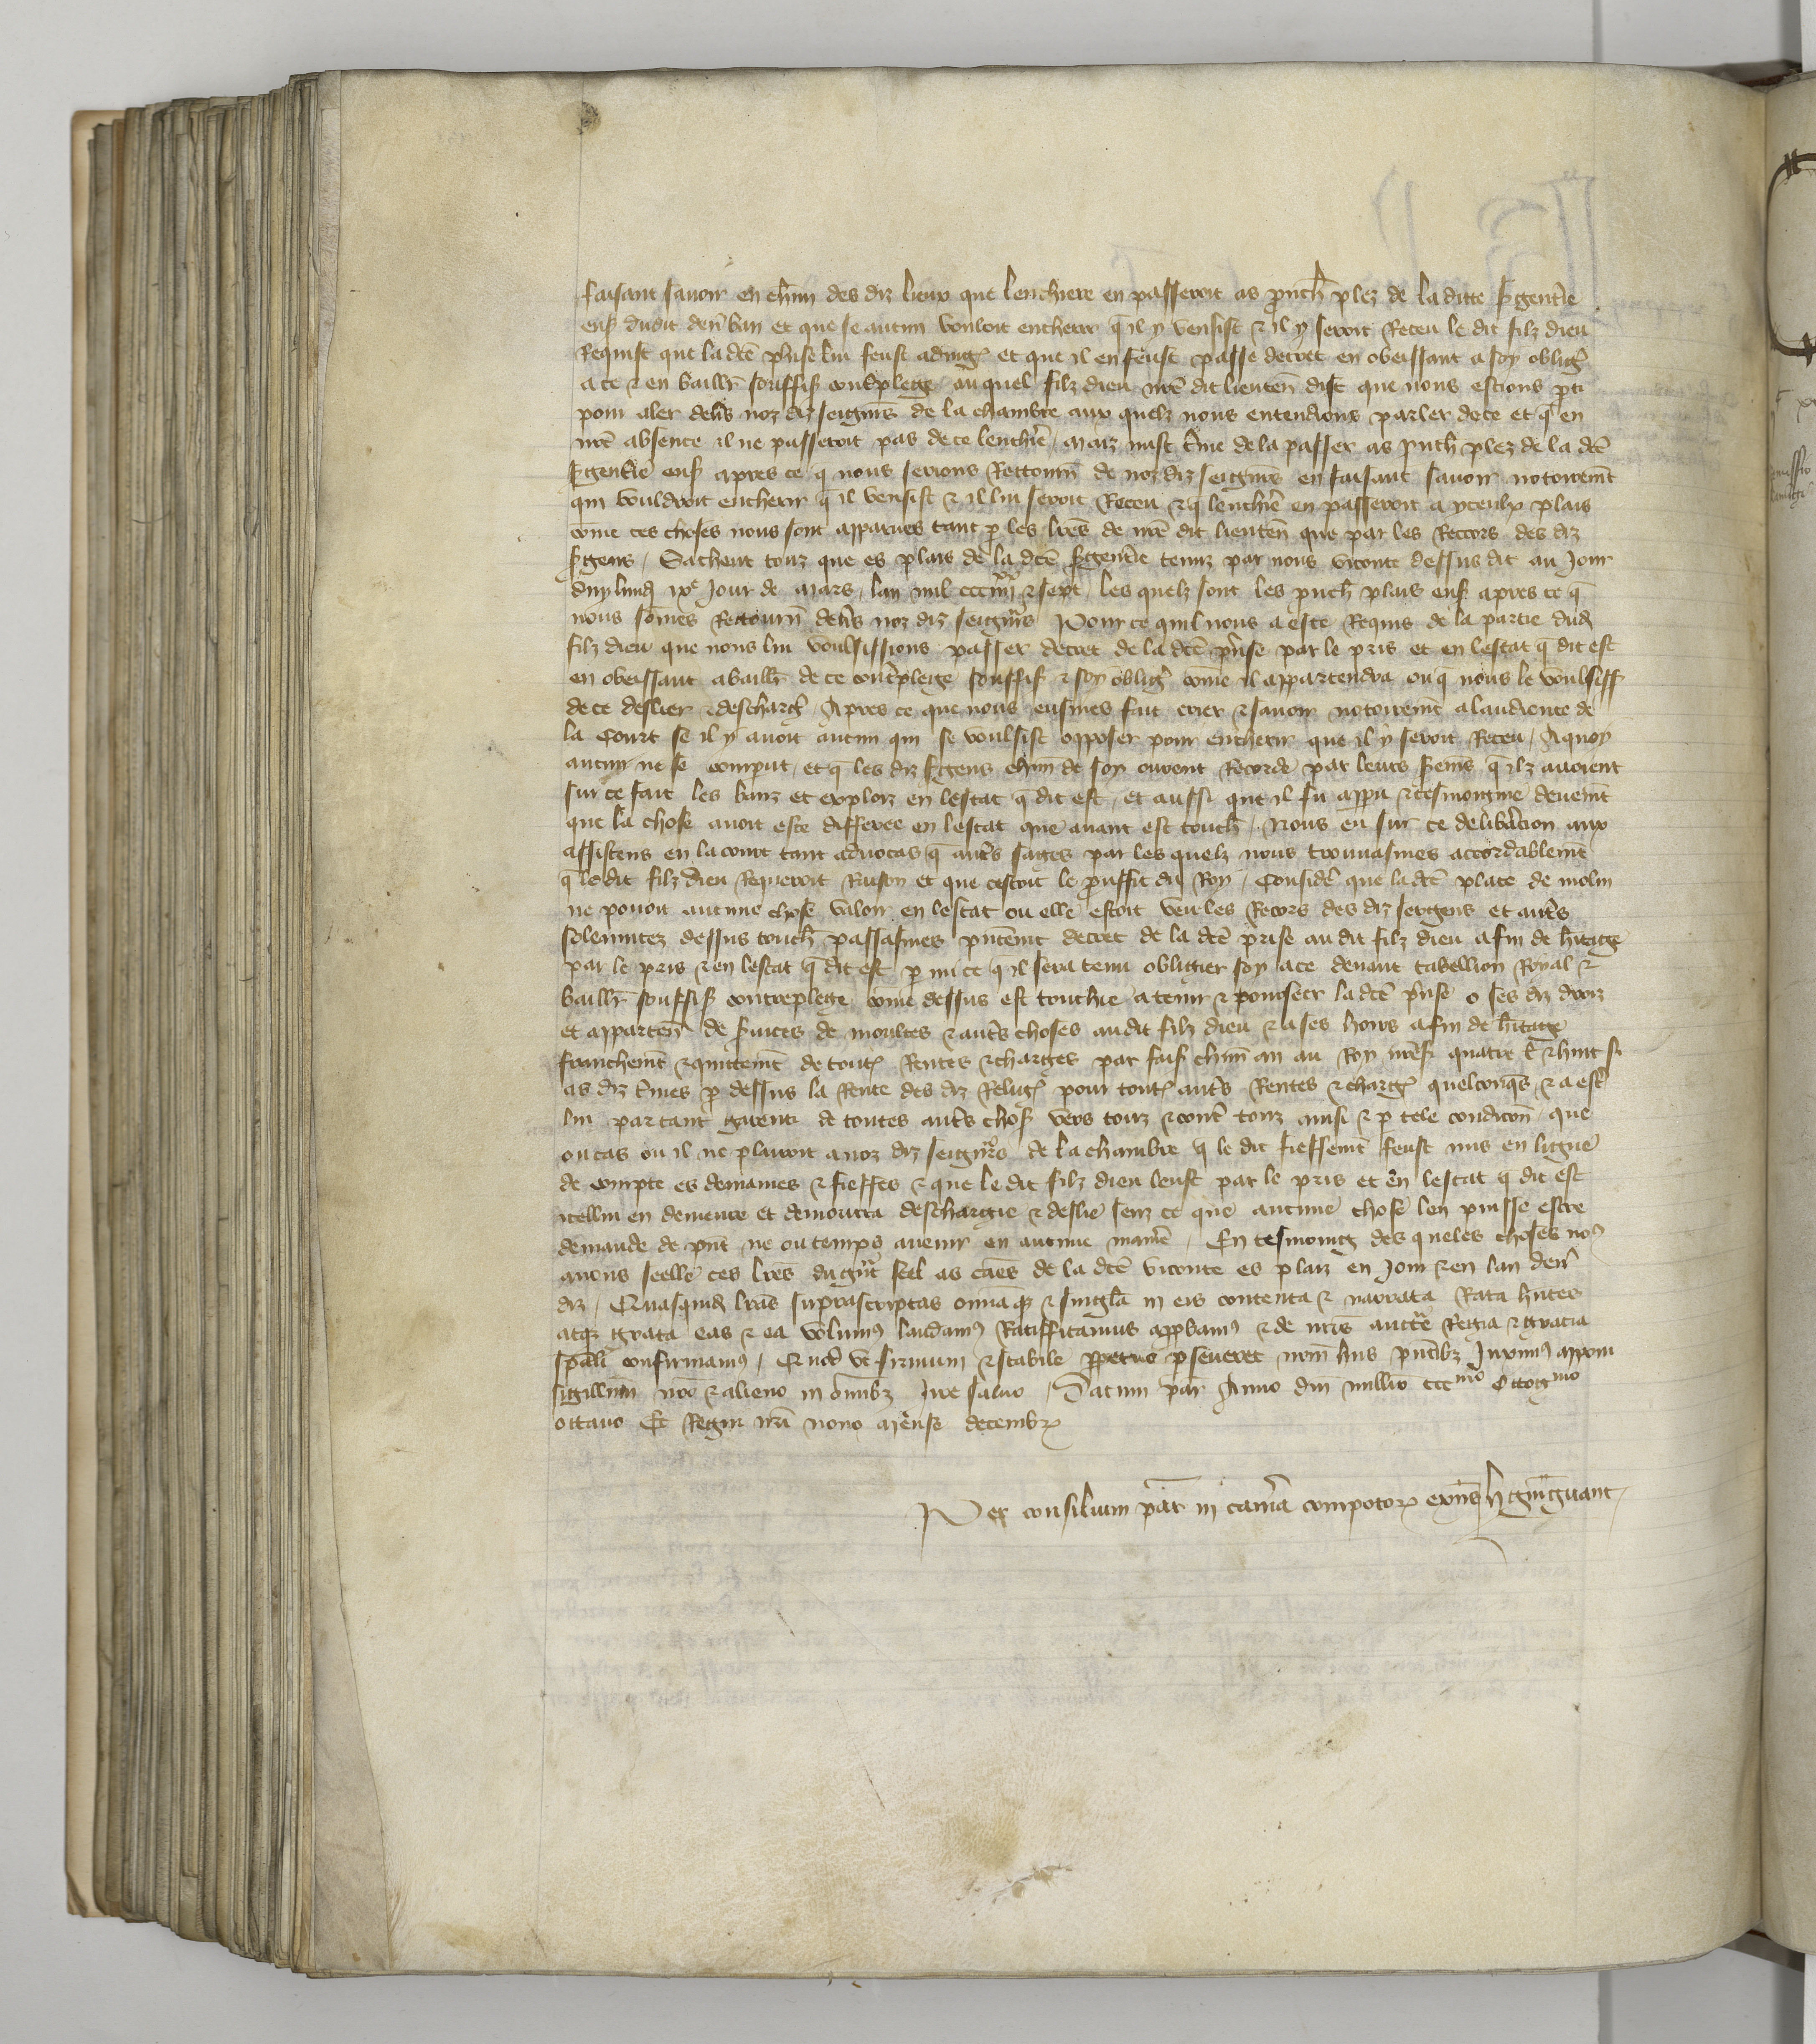 faisant savoir en chun des diz lieux que lenchiere en passeroit as pruch plez de la ditte sergentie
ens dudit den ban et que se aucun vouloit encherir q il y venist & il y seroit Receu le dit filz dieu
Requist que la dce prise lui feust adiug et que il en feust passe decret en obeissant a soy oblig
a ce & en baillr souffis contreplege auquel filz dieu nre dit lieuten dist que nous estions pti
pour aler devs noz diz seigneurs de la chambre aux quelz nous entendions parler de ce et q en
nre absence il ne passeroit pas de ce lenchre maiz mist tme de la passer as pruch plez de la dce
sgentie ens apres ce q nous serions Retourn de noz diz seigneurs en faisant savoir notoiremt
qui vouldroit encherir q il venist & il lui seroit Receu & q lenchre en passeroit a yceulx plais
come ces choses nous sont apparues tant p les lres de nre dit lieuten que par les Recors des diz
sgens / Sachent touz que es plais de la dce sgentie tenuz par nous viconte dessus dit au jour
duy lundi ixe jour de mars lan mil ccc iiiixx & sept les quelz sont les pruch plais ens apres ce q
nous somes Retourn devs noz diz seigneurs Pour ce quil nous a este Requis de la partie dud
filz dieu que nous lui voulsissions passer decret de la dce prise par le pris et en lestat q dit est
en obeissant a baillr de ce contreplege souffis & soy oblig come il appartendra ou q nous le voulsiss
de ce deslier & descharg / Apres ce que nous eusmes fait crier & savoir notoiremt a laudience de
la Court se il y avoit aucun qui se voulsist opposer pour encherir que il y seroit Receu / A quoy
aucun ne se comput / et q les diz sgens chun de soy ourent Recorde par leurs sems q ilz avoient
sur ce fait les banz et exploiz en lestat q dit est / et aussi que il fu appu & tesmongnie deuemt
que la chose avoit este differee en lestat que avant est touch / Nous eu sur ce delibacion aux
assistens en la court tant advocas q auts sages par les quelz nous trouvasmes accordablemt
q le dit filz dieu Requeroit Raison et que cestoit le prouffit du Roy / Consider que la dce place de molin
ne povoit aucune chose valoir en lestat ou elle estoit veu les Recors des diz sergens et auts
solennitez dessus touch passasmes pntemt decret de la dce prise au dit filz dieu afin de hitage
par le pris & en lestat q dit est p mi ce q il sera tenu obligier soy a ce devant tabellion Royal &
baillr souffis contreplege come dessus est touchie a tenir & pourseer la dce prise o ses diz droiz
et apparten de services de moultes & auts choses audit filz dieu & a ses hoirs afin de hitage
franchemt & quittemt de tout Rentes & charges par fais chun an au Roy nres quatre l & huit s
as diz tmes p dessus la Rente des diz Relig pour tout auts Rentes & charg quelconqs & a est
lui par tant garenti de toutes auts chos vers touz & cont touz ainsi & p tele condicon que
ou cas ou il ne plairoit a noz diz seigneurs de la chambre q le dit fieffemt feust mis en ligne
de compte es demaines & fieffes & que le dit filz dieu leust par le pris et en lestat q dit est
icellui en demeure et demourra deschargie & deslie senz ce que aucune chose len puisse estre
demande de pnt ne ou temps avenir en aucune maniere / En tesmoing des queles choses nous
avons seelle ces lres du grt seel as caes de la dce viconte es plaiz en jour & en lan derr
diz / Quasquid lras suprascriptas omnia q & singla in eis contenta & narrata Rata hntes
atqz grata eas & ea volumus laudamus Ratifficamus approbamus & de nris auctte Regia & gracia
spali confirmamus / Quod ut firmum & stabile ppetuo pseveret nrm hiis pntibz Juximus apponi
sigillum nro & alieno in omibz jure salvo / Datum par Anno dni millio cccmo Octogmo
octavo Et Regni nri nono Mense decembr
Per consilium par in camera compotorum exns H Guingant